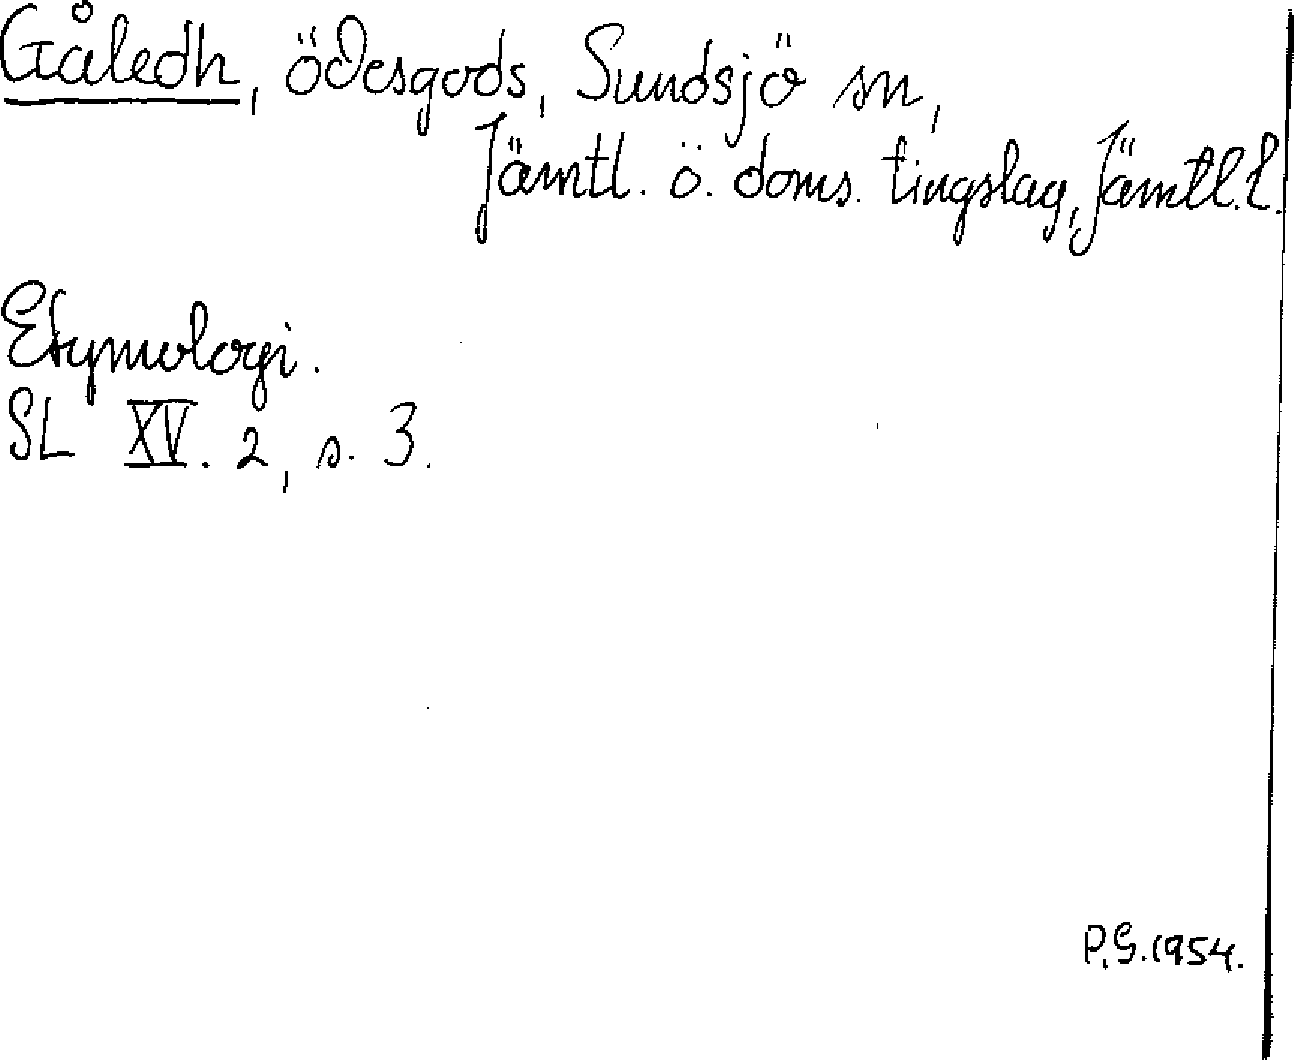 Gåledh, ödesgods, Sundsjö sn,
Jämtl. ö. doms. tingslag, Jämtl. l.
Etymologi.
SL XV. 2, s. 3.
P.G. 1954.